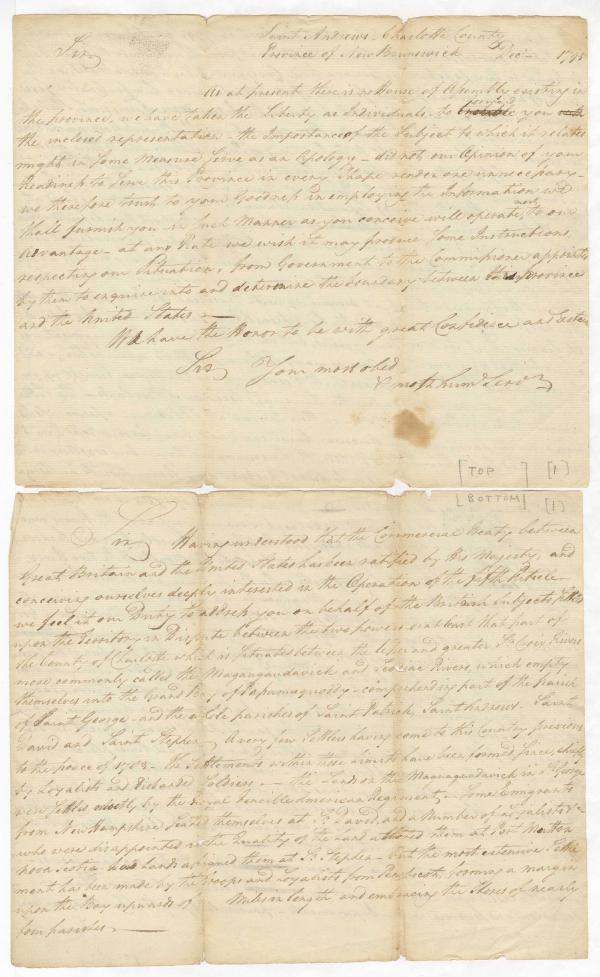 Saint Andrews - Charlotte County
Sir Province of New Brunswick Decr 1795
As at present there is no House of Assembly existing in
the province, we have taken the Liberty as Individuals - to trouble you with
the inclosed representation - the Importance of the Subject to which it relates
might in some measure serve as an Apology - did not our Opinion of your
Readiness to serve this Province in every Shape render one unnecessary -
we therefore trust to your Goodness in employing the Information we
shall furnish you - in such Manner as you conceive will operate most to our
Advantage - at any Rate we wish it may produce some Instructions
respecting our Situation, from Government to the Commissioner appointed
by them to enquire into and determine the boundary between this province
and the United States -
We have the Honor to be with great Confidence and Esteem
Sir Your most obed
& most humb Servts
[TOP] [1]
[BOTTOM] [1]
Sir Having understood that the Commercial Treaty between
Great Britain and the United States has been ratified by His Majesty, and
conceiving ourselves deeply interested in the Operation of the fifth Article -
we feel it our Duty to address you on behalf of the British Subjects settled
upon the Territory in Dispute between the two powers or at least that part of
the County of Charlotte which is situated between the lesser and greater St Croix Rivers
more commonly called the Magaguadavick and Rivers, which empty
themselves into the Grand Bay of Passamaquoddy - comprehending part of the Parish
of Saint George - and the whole parishes of Saint Patrick, Saint Andrews - Saint
David and Saint Stephen A very few Settlers having come to this Country previous
to the peace of 1783 - the Settlements within these limits have been formed since, chiefly
by Loyalists and Disbanded Soldiers - the Lands on the Magaguadavick in St George
were settled by the Royal Fencible American Regiment - Some Emigrants
from New Hampshire seated themselves at St David, and a Number of Loyalists &c
who were disappointed in the Quality of the Land allotted them at Port Matton
Nova Scotia had Lands assigned them at St Stephen - but the most extensive Settle
ment has been made by the Troops and Loyalists from Penobscot, forming a margin
upon the Bay upwards of Miles in length and embracing the Shores of nearly
four parishes. -